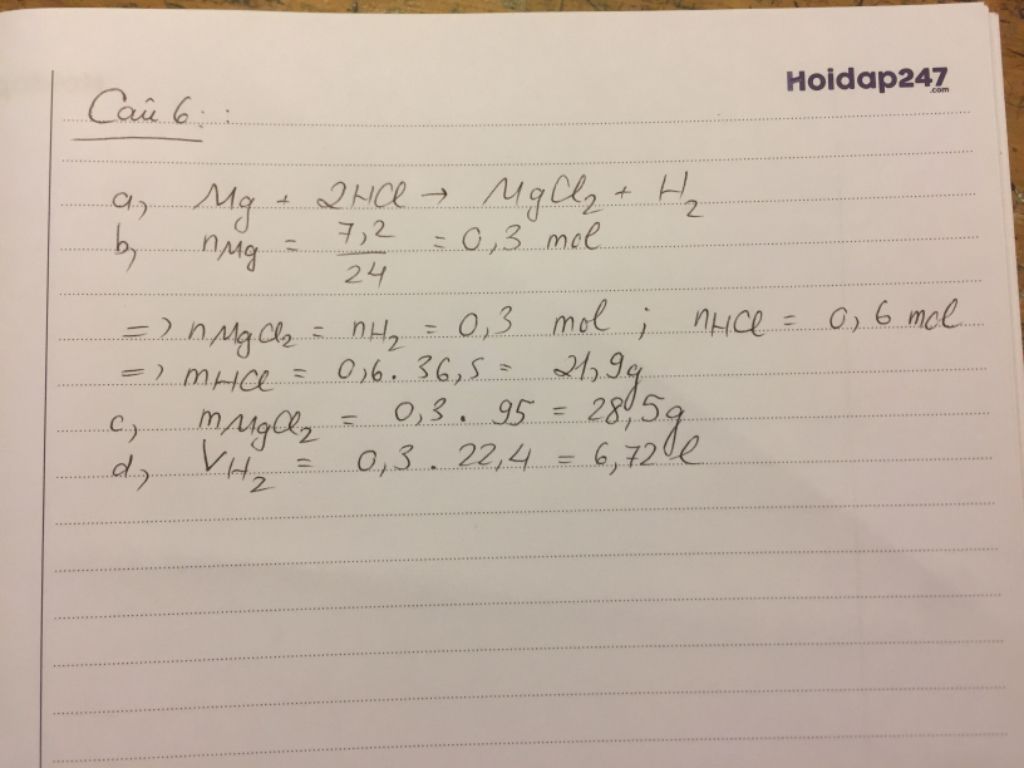 Hoidap247
.com
Câu 6: :
a, Mg + 2HCl → MgCl₂ + H₂
b, nMg = 7,2/24 = 0,3 mol
=> nMgCl₂ = nH₂ = 0,3 mol ; nHCl = 0,6 mol
=> mHCl = 0,6. 36,5 = 21,9g
c, mMgCl₂ = 0,3 . 95 = 28,5g
d, VH₂ = 0,3 . 22,4 = 6,72 l